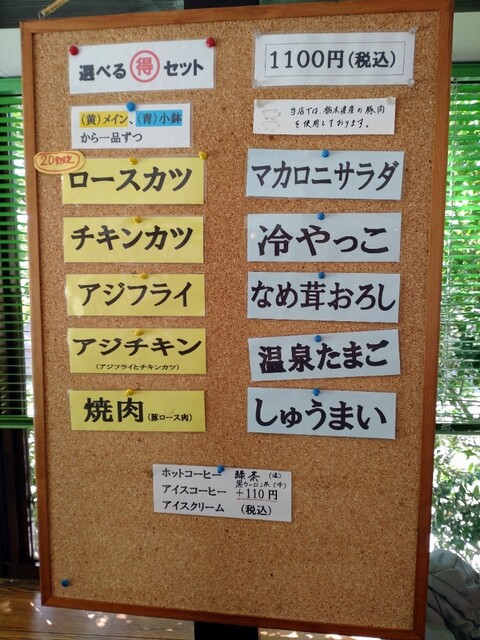 選べる㊕セット
1100円(税込)
(黄)メイン、(青)小鉢
から一品ずつ
当店では、栃木県産の豚肉
を使用しております。
ロースカツ
チキンカツ
アジフライ
アジチキン
(アジフライとチキンカツ)
焼肉(豚ロース肉)
マカロニサラダ
冷やっこ
なめ茸おろし
温泉たまご
しゅうまい
ホットコーヒー 緑茶(温)
黒ウーロン茶(冷)
アイスコーヒー +110円
アイスクリーム (税込)